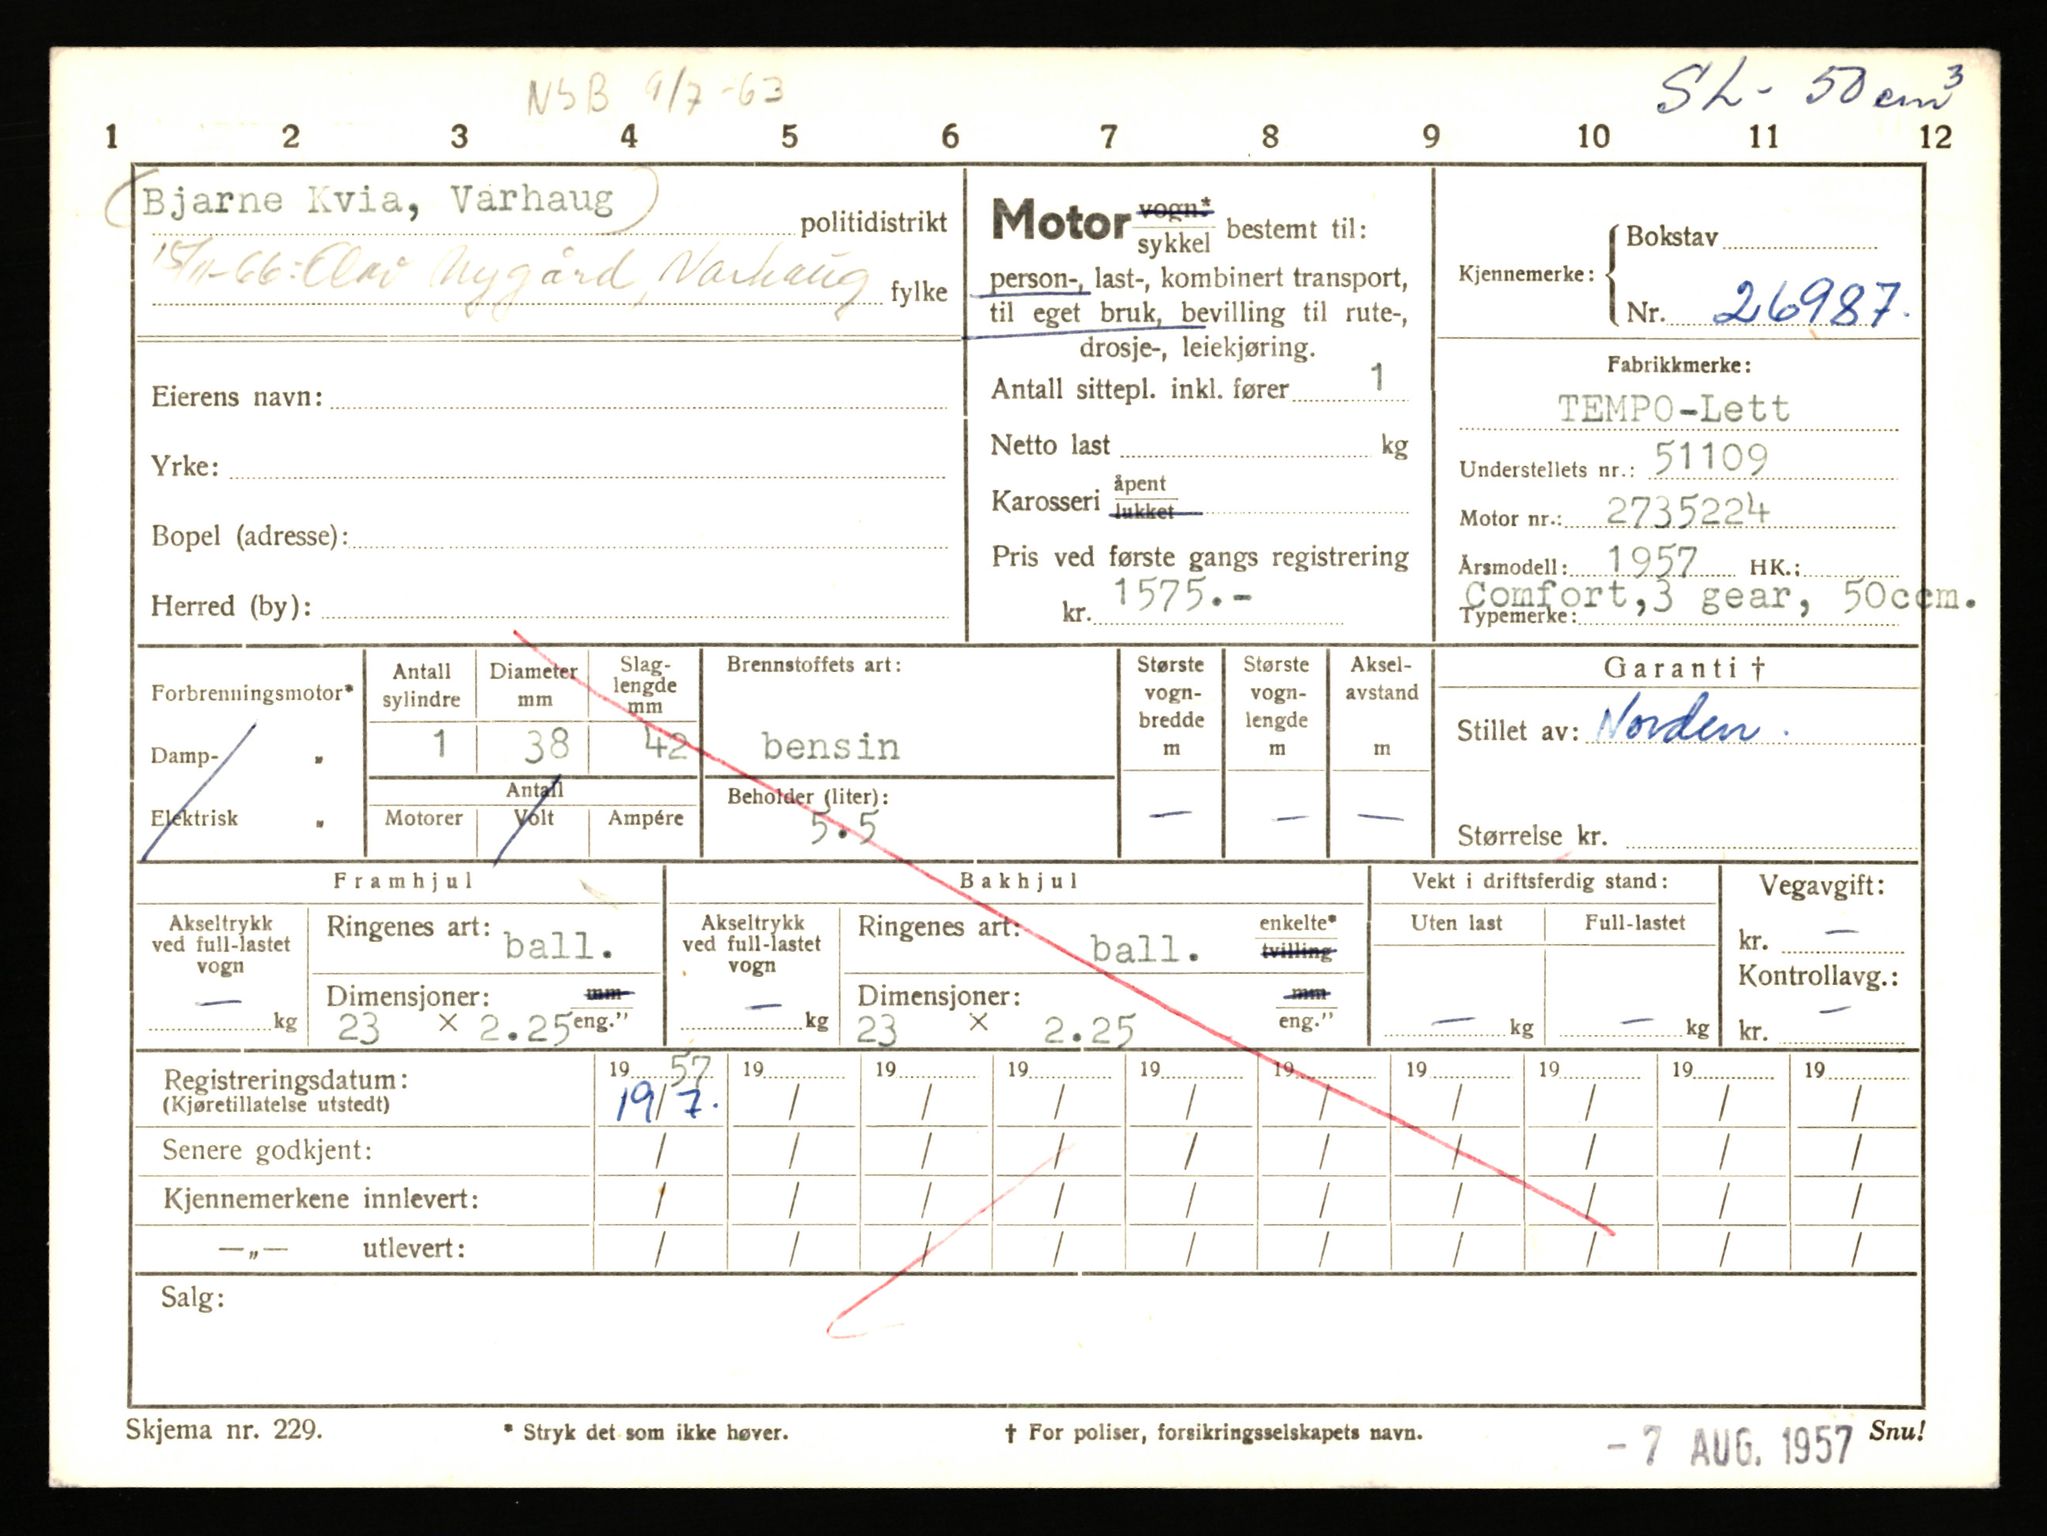 NSB 9/7-63
SL- 50 cm³
1 2 3 4 5 6 7 8 9 10 11 12
Bjarne Kvia, Varhaug politidistrikt
15/11-66: Olav Nygård, Varhaug fylke
Eierens navn:
Yrke:
Bopel (adresse):
Herred (by):
Motor vogn* sykkel bestemt til:
person-, last-, kombinert transport,
til eget bruk, bevilling til rute-,
drosje-, leiekjøring.
Antall sittepl. inkl. fører 1
Netto last kg
Karosseri åpent lukket
Pris ved første gangs registrering
kr. 1575.-
Kjennemerke: Bokstav
Nr. 26987.
Fabrikkmerke:
TEMPO-Lett
Understellets nr.: 51109
Motor nr.: 2735224
Årsmodell: 1957 HK.:
Comfort, 3 gear, 50ccm.
Typemerke:
Forbrenningsmotor*
Damp- „
Elektrisk „
Antall sylindre 1
Diameter mm 38
Slag-lengde mm 42
Antall
Motorer Volt Ampére
Brennstoffets art:
bensin
Beholder (liter):
5.5
Største vogn-bredde m —
Største vogn-lengde m —
Aksel-avstand m —
Garanti †
Stillet av: Norden.
Størrelse kr.
Framhjul
Akseltrykk ved full-lastet vogn
— kg
Ringenes art: ball.
Dimensjoner: mm
23 × 2.25 eng."
Bakhjul
Akseltrykk ved full-lastet vogn
— kg
Ringenes art: ball. enkelte* tvilling
Dimensjoner: mm
23 × 2.25 eng."
Vekt i driftsferdig stand:
Uten last Full-lastet
— kg — kg
Vegavgift:
kr. —
Kontrollavg.:
kr. —
Registreringsdatum: 19 57 19 19 19 19 19 19 19 19 19
(Kjøretillatelse utstedt) 19/7. / / / / / / / / /
Senere godkjent: / / / / / / / / / /
Kjennemerkene innlevert: / / / / / / / / / /
—„— utlevert: / / / / / / / / / /
Salg:
Skjema nr. 229.
* Stryk det som ikke høver.
† For poliser, forsikringsselskapets navn.
Snu!
- 7 AUG. 1957